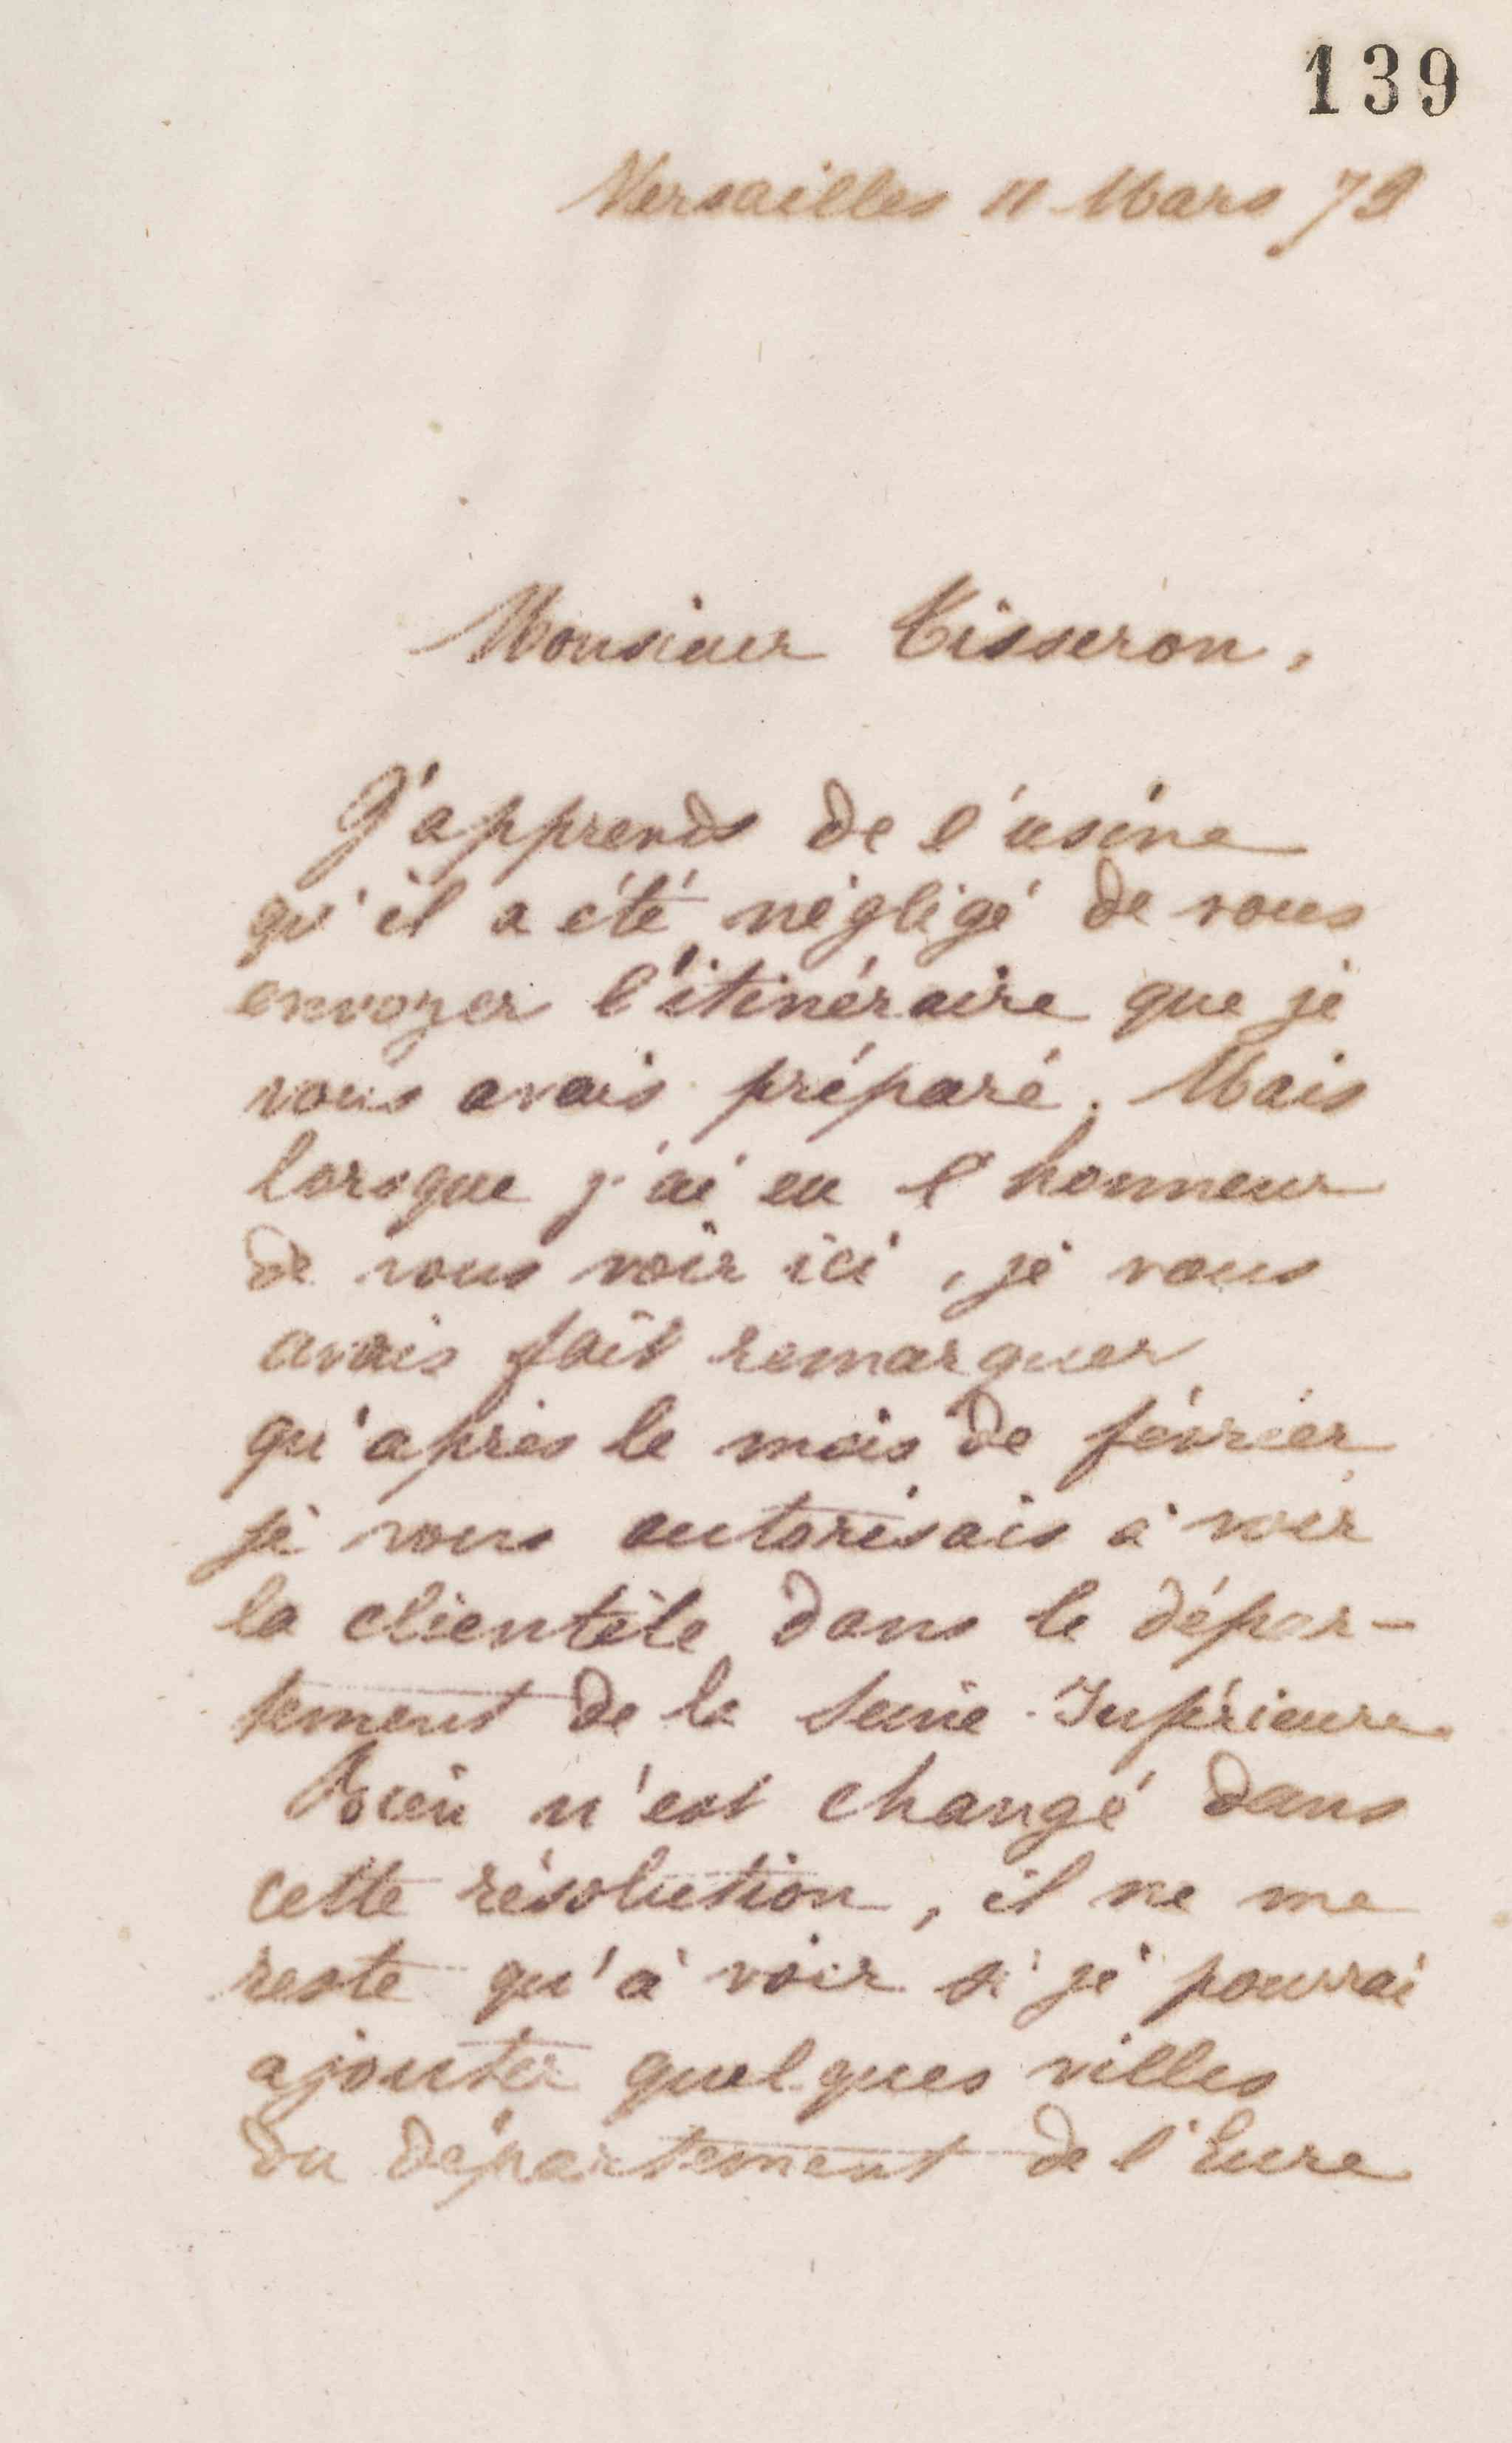 139
Versailles 11 Mars 79
Monsieur Tisseron,
J'apprends de l'usine
qu'il a été négligé de vous
envoyer l'itinéraire que je
vous avais préparé. Mais
lorsque j'ai eu l'honneur
de vous voir ici, je vous
avais fait remarquer
qu'après le mois de février
je vous autorisais à voir
la clientèle dans le dépar-
tement de la Seine-Inférieure
Rien n'est changé dans
cette résolution, il ne me
reste qu'à voir si je pourrai
ajouter quelques villes
du département de l'Eure